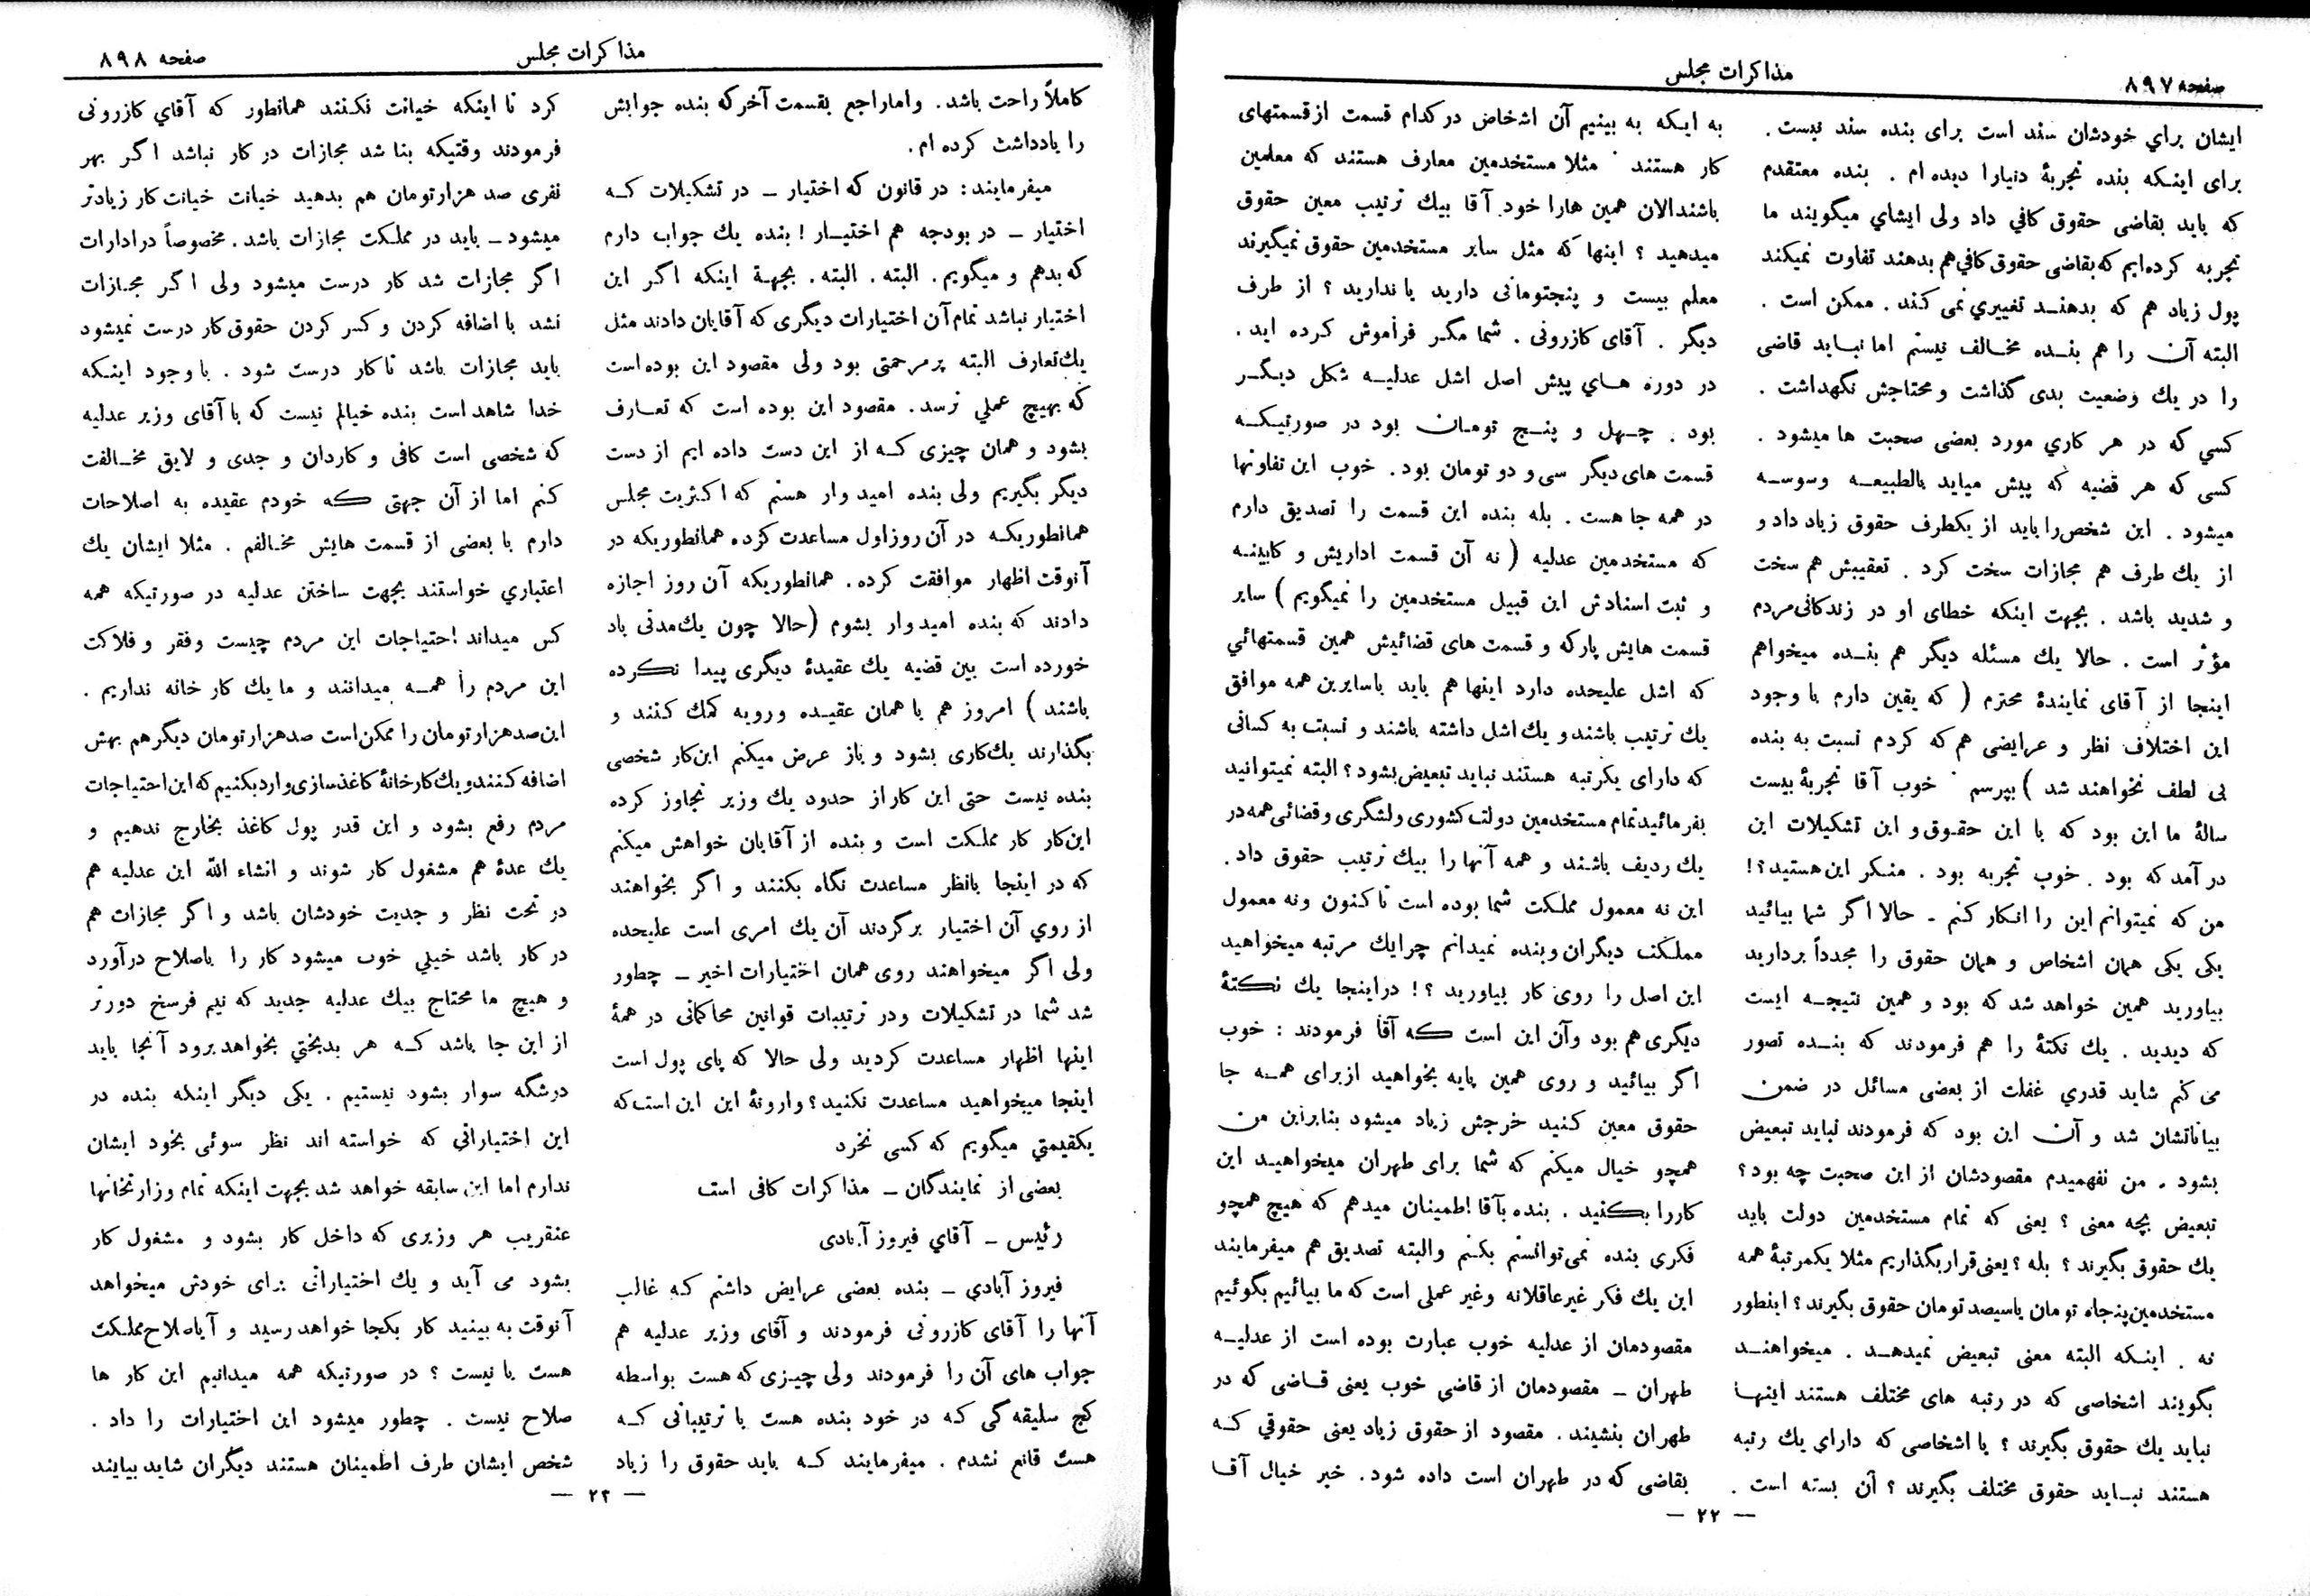 صفحه ۸۹۷
مذاکرات مجلس
ایشان برای خودشان سند است برای بنده سند نیست .
برای اینکه بنده تجربهٔ دنیارا دیده ام . بنده معتقدم
که باید بقاضی حقوق کافی داد ولی ایشای میگویند ما
تجربه کرده‌ایم که بقاضی حقوق کافی هم بدهند تفاوت نمیکند
پول زیاد هم که بدهند تغییری نمی کند . ممکن است .
البته آن را هم بنده مخالف نیستم اما نباید قاضی
را در یك وضعیت بدی گذاشت و محتاجش نگهداشت .
کسی که در هر کاری مورد بعضی صحبت ها میشود .
کسی که هر قضیه که پیش میاید بالطبیعه وسوسه
میشود . این شخص را باید از یکطرف حقوق زیاد داد و
از یك طرف هم مجازات سخت کرد . تعقیبش هم سخت
و شدید باشد . بجهت اینکه خطای او در زندکانی مردم
مؤثر است . حالا یك مسئله دیگر هم بنده میخواهم
اینجا از آقای نمایندهٔ محترم ( که یقین دارم با وجود
این اختلاف نظر و عرایضی هم که کردم نسبت به بنده
بی لطف نخواهند شد ) بپرسم ٠ خوب آقا تجربهٔ بیست
سالهٔ ما این بود که با این حقوق و این تشکیلات این
در آمد که بود . خوب تجربه بود . منکر این هستید؟!
من که نمیتوانم این را انکار کنم - حالا اگر شما بیائید
یکی یکی همان اشخاص و همان حقوق را مجدداً بردارید
بیاورید همین خواهد شد که بود و همین نتیجه ایست
که دیدید . یك نکتهٔ را هم فرمودند که بنده تصور
می کنم شاید قدری غفلت از بعضی مسائل در ضمن
بیاناتشان شد و آن این بود که فرمودند نباید تبعیض
بشود . من نفهمیدم مقصودشان از این صحبت چه بود؟
تبعیض بچه معنی ؟ یعنی که تمام مستخدمین دولت باید
یك حقوق بگیرند ؟ بله ؟ یعنی قرار بگذاریم مثلا یکمرتبهٔ همه
مستخدمین پنجاه تومان یا سیصد تومان حقوق بگیرند ؟ اینطور
نه . اینکه البته معنی تبعیض نمیدهد . میخواهند
بگویند اشخاصی که در رتبه های مختلف هستند اینها
نباید یك حقوق بگیرند ؟ یا اشخاصی که دارای یك رتبه
هستند نباید حقوق مختلف بگیرند ؟ آن بسته است .
به ایکه به بینیم آن اشخاص در کدام قسمت از قسمتهای
کار هستند ٠ مثلا مستخدمین معارف هستند که معلمین
باشند الان همین هارا خود آقا بیك ترتیب معین حقوق
میدهید ؟ اینها که مثل سایر مستخدمین حقوق نمیگیرند
معلم بیست و پنجتومانی دارید یا ندارید ؟ از طرف
دیگر . آقای کازرونی . شما مگر فراموش کرده اید .
در دوره های پیش اصل اشل عدلیه شکل دیگر
بود . چهل و پنج تومان بود در صورتیکه
قسمت های دیگر سی و دو تومان بود . خوب این تفاوتها
در همه جا هست . بله بنده این قسمت را تصدیق دارم
که مستخدمین عدلیه ( نه آن قسمت اداریش و کابینه
و ثبت اسنادش این قبیل مستخدمین را نمیگویم ) سایر
قسمت هایش پارکه و قسمت های قضائیش همین قسمتهائی
که اشل علیحده دارد اینها هم باید باسایرین همه موافق
یك ترتیب باشند و یك اشل داشته باشند و نسبت به کسانی
که دارای یکرتبه هستند نباید تبعیض بشود ؟ البته نمیتوانید
بفرمائید تمام مستخدمین دولت کشوری و لشگری و قضائی همه در
یك ردیف باشند و همه آنها را بیك ترتیب حقوق داد .
این نه معمول مملکت شما بوده است تا کنون و نه معمول
مملکت دیگران و بنده نمیدانم چرا یك مرتبه میخواهید
این اصل را روی کار بیاورید ؟! در اینجا یك نکتهٔ
دیگری هم بود و آن این است که آقا فرمودند : خوب
اگر بیائید و روی همین پایه بخواهید از برای همه جا
حقوق معین کنید خرجش زیاد میشود بنابراین من
همچو خیال میکنم که شما برای طهران میخواهید این
کاررا بکنید . بنده بآقا اطمینان میدهم که هیچ همچو
فکری بنده نمی‌توانستم بکنم والبته تصدیق هم میفرمایند
این یك فکر غیرعاقلانه وغیر عملی است که ما بیائیم بگوئیم
مقصودمان از عدلیه خوب عبارت بوده است از عدلیه
طهران – مقصودمان از قاضی خوب یعنی قاضی که در
طهران بنشیند . مقصود از حقوق زیاد یعنی حقوقی که
بقاضی که در طهران است داده شود . خیر خیال آقا
— ۲۲ —
مذاکرات مجلس
صفحه ۸۹۸
کاملاً راحت باشد . و اما راجع بقسمت آخر که بنده جوابش
را یادداشت کرده ام .
میفرمایند : در قانون که اختیار – در تشکیلات که
اختیار – در بودجه هم اختیار ! بنده یك جواب دارم
که بدهم و میگویم . البته . البته . بجهة اینکه اگر این
اختیار نباشد تمام آن اختیارات دیگری که آقایان دادند مثل
یك تعارف البته پر مرحمتی بود ولی مقصود این بوده است
که بهیچ عملی نرسد . مقصود این بوده است که تعارف
بشود و همان چیزی که از این دست داده ایم از دست
دیگر بگیریم ولی بنده امید وار هستم که اکثریت مجلس
همانطوریکه در آن روز اول مساعدت کرده همانطوریکه در
آنوقت اظهار موافقت کرده . همانطوریکه آن روز اجازه
دادند که بنده امیدوار بشوم (حالا چون یك مدتی باد
خورده است بین قضیه یك عقیدهٔ دیگری پیدا نکرده
باشند ) امروز هم با همان عقیده و رویه کمك کنند و
بگذارند یك کاری بشود و باز عرض میکنم این کار شخصی
بنده نیست حتی این کار از حدود یك وزیر تجاوز کرده
این کار کار مملکت است و بنده از آقایان خواهش میکنم
که در اینجا بانظر مساعدت نگاه بکنند و اگر بخواهند
از روی آن اختیار برگردند آن یك امری است علیحده
ولی اگر میخواهند روی همان اختیارات اخیر – چطور
شد شما در تشکیلات ودر ترتیبات قوانین محاکمانی در همهٔ
اینها اظهار مساعدت کردید ولی حالا که پای پول است
اینجا میخواهید مساعدت نکنید ؟ وارونهٔ این این است که
یکقیمتی میگویم که کسی نخرد
بعضی از نمایندگان – مذاکرات کافی است
رئیس – آقای فیروز آبادی
فیروز آبادی – بنده بعضی عرایض داشتم که غالب
آنها را آقای کازرونی فرمودند و آقای وزیر عدلیه هم
جواب های آن را فرمودند ولی چیزی که هست بواسطه
کج سلیقه گی که در خود بنده هست یا ترتیباتی که
هست قانع نشدم . میفرمایند که باید حقوق را زیاد
کرد تا اینکه خیانت نکنند همانطور که آقای کازرونی
فرمودند وقتیکه بنا شد مجازات در کار نباشد اگر بهر
نفری صد هزار تومان هم بدهید خیانت خیانت کار زیادتر
میشود – باید در مملکت مجازات باشد . مخصوصاً در ادارات
اگر مجازات شد کار درست میشود ولی اگر مجازات
نشد با اضافه کردن و کسر کردن حقوق کار درست نمیشود
باید مجازات باشد تا کار درست شود . با وجود اینکه
خدا شاهد است بنده خیالم نیست که با آقای وزیر عدلیه
که شخصی است کافی و کاردان و جدی و لایق مخالفت
کنم اما از آن جهتی که خودم عقیده به اصلاحات
دارم با بعضی از قسمت هایش مخالفم . مثلا ایشان یك
اعتباری خواستند بجهت ساختن عدلیه در صورتیکه همه
کس میداند احتیاجات این مردم چیست وفقر و فلاکت
این مردم را همه میدانند و ما یك کار خانه نداریم .
این صدهزار تومان را ممکن است صد هزار تومان دیگر هم بهش
اضافه کنند و یك کارخانهٔ کاغذسازی وارد بکنیم که این احتیاجات
مردم رفع بشود و این قدر پول کاغذ بخارج ندهیم و
یك عدهٔ هم مشغول کار شوند و انشاء الله این عدلیه هم
در تحت نظر و جدیت خودشان باشد و اگر مجازات هم
در کار باشد خیلی خوب میشود کار را باصلاح در‌آورد
و هیچ ما محتاج بیك عدلیه جدید که نیم فرسخ دورتر
از این جا باشد که هر بدبختی بخواهد برود آنجا باید
درشگه سوار بشود نیستیم . یکی دیگر اینکه بنده در
این اختیاراتی که خواسته اند نظر سوئی بخود ایشان
ندارم اما این سابقه خواهد شد بجهت اینکه تمام وزارتخانها
عنقریب هر وزیری که داخل کار بشود و مشغول کار
بشود می آید و یك اختیاراتی برای خودش میخواهد
آنوقت به بینید کار بکجا خواهد رسید و آیا صلاح مملکت
هست یا نیست ؟ در صورتیکه همه میدانیم این کار ها
صلاح نیست . چطور میشود این اختیارات را داد .
شخص ایشان طرف اطمینان هستند دیگران شاید بیایند
— ۲۳ —